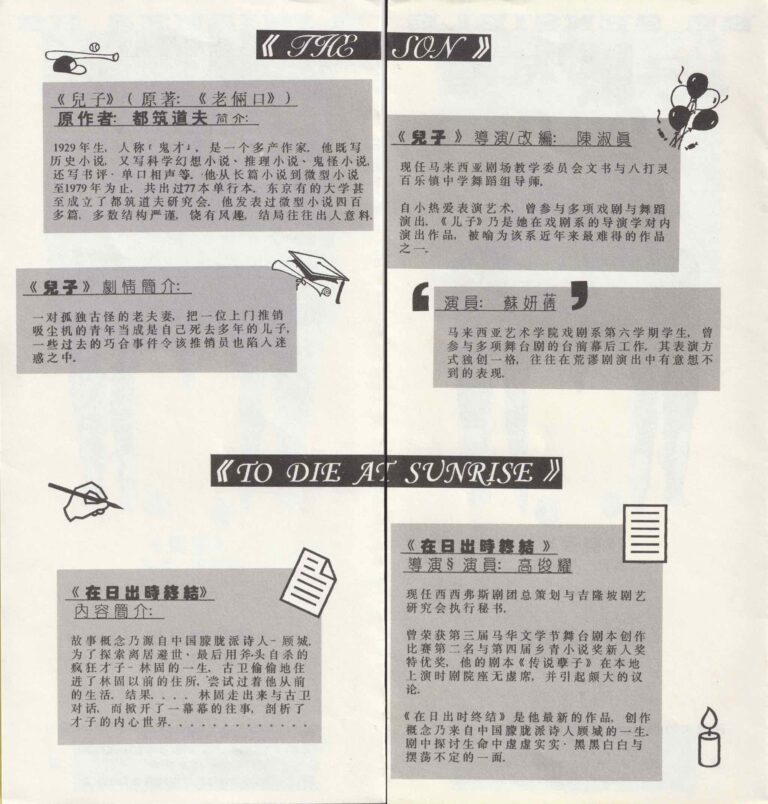 《 THE SON 》
《兒子》（原著：《老倆口》）
原作者：都筑道夫 简介：
1929年生，人称「鬼才」，是一个多产作家，他既写
历史小说，又写科学幻想小说、推理小说、鬼怪小说，
还写书评·单口相声等。他从长篇小说到微型小说
至1979年为止，共出过77本单行本。东京有的大学甚
至成立了都筑道夫研究会。他发表过微型小说四百
多篇，多数结构严谨，饶有风趣，结局往往出人意料。
《兒子》劇情簡介：
一对孤独古怪的老夫妻，把一位上门推销
吸尘机的青年当成是自己死去多年的儿子，
一些过去的巧合事件令该推销员也陷入迷
惑之中。
《兒子》導演/改編：陳淑眞
现任马来西亚剧场教学委员会文书与八打灵
百乐镇中学舞蹈组导师。
自小热爱表演艺术，曾参与多项戏剧与舞蹈
演出。《儿子》乃是她在戏剧系的导演学对内
演出作品，被喻为该系近年来最难得的作品
之一。
演員：蘇妍蒨
马来西亚艺术学院戏剧系第六学期学生，曾
参与多项舞台剧的台前幕后工作，其表演方
式独创一格，往往在荒谬剧演出中有意想不
到的表现。
《TO DIE AT SUNRISE》
《在日出時終結》
内容簡介：
故事概念乃源自中国朦胧派诗人-顾城，
为了探索离居避世·最后用斧头自杀的
疯狂才子-林固的一生，古卫偷偷地住
进了林固以前的住所，尝试过着他从前
的生活。结果．．．．林固走出来与古卫
对话，而掀开了一幕幕的往事，剖析了
才子的内心世界．．．．．．．．．．．．．
《在日出時終結》
導演§演員：高俊耀
现任西西弗斯剧团总策划与吉隆坡剧艺
研究会执行秘书。
曾荣获第三届马华文学节舞台剧本创作
比赛第二名与第四届乡青小说奖新人奖
特优奖，他的剧本《传说孽子》在本地
上演时剧院座无虚席，并引起颇大的议
论。
《在日出时终结》是他最新的作品，创作
概念乃来自中国朦胧派诗人顾城的一生。
剧中探讨生命中虚虚实实·黑黑白白与
摆荡不定的一面。